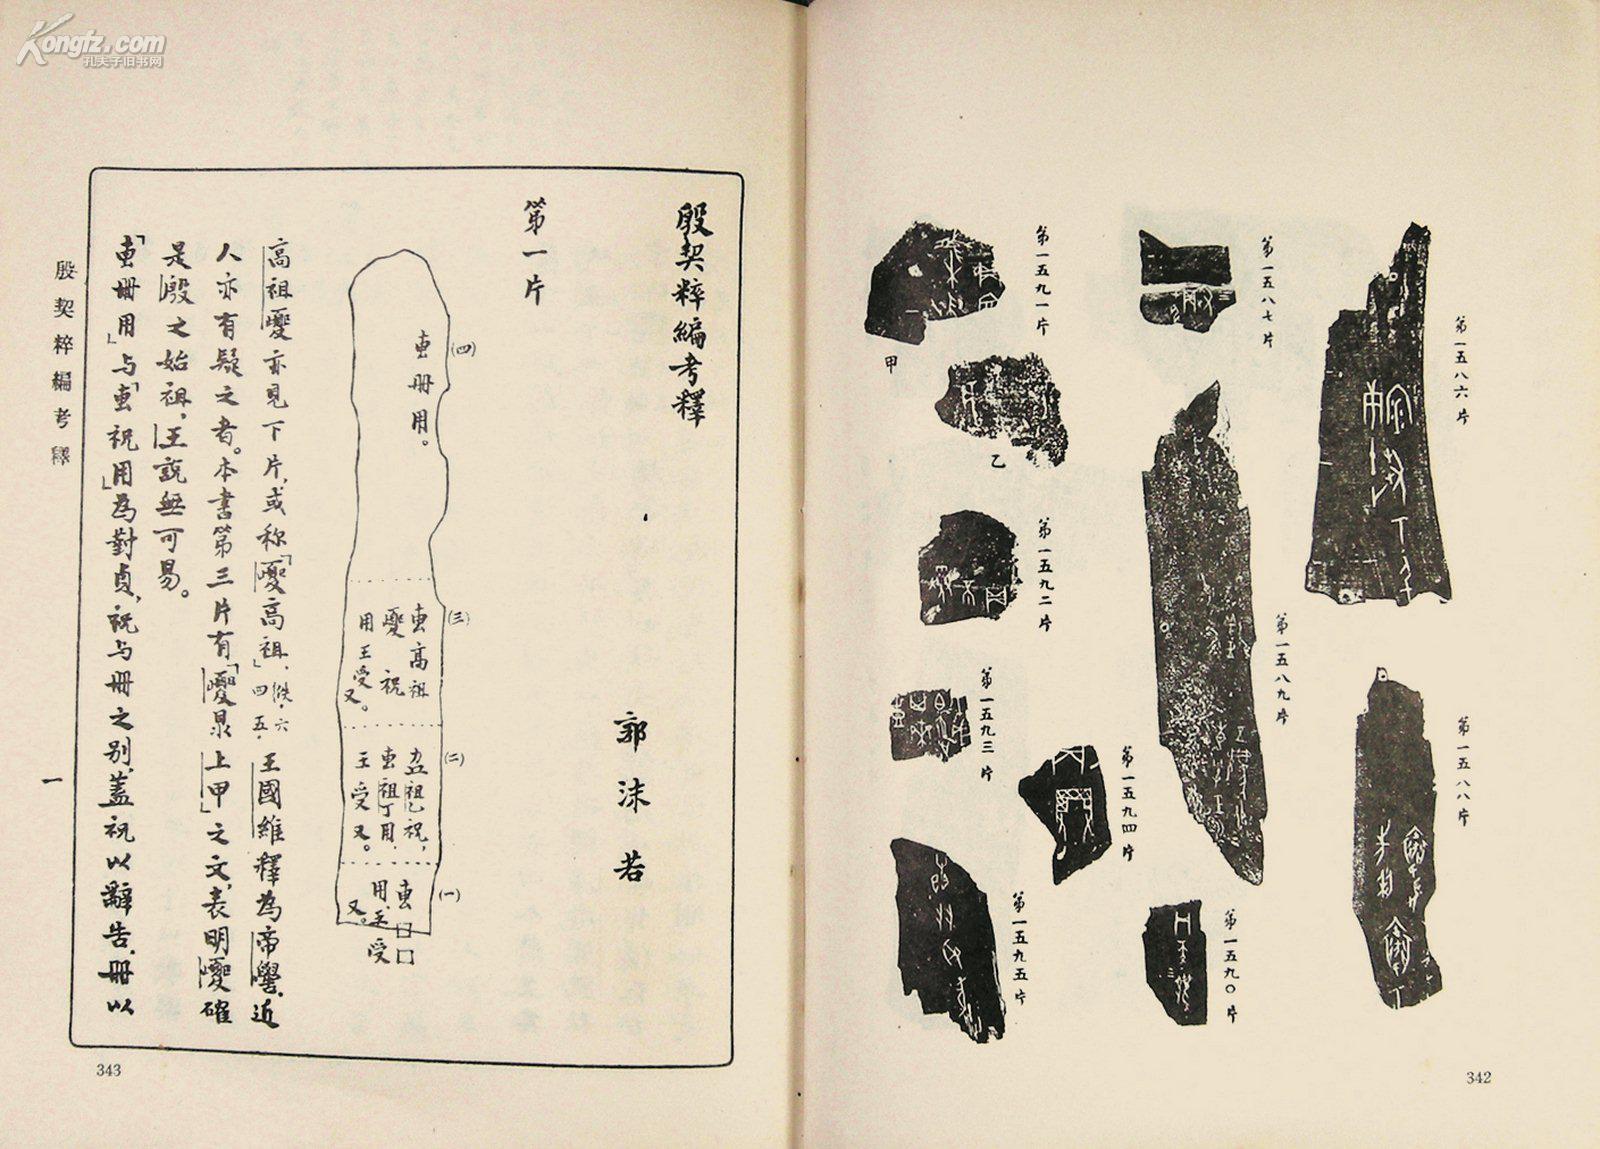 Kongfz.com
孔夫子旧书网
第一五八六片
第一五八八片
第一五八七片
第一五八九片
第一五九〇片
第一五九一片
甲
乙
第一五九二片
第一五九三片
第一五九四片
第一五九五片
342
殷契粹編考釋
郭沫若
第一片
(四)
叀冊用。
(三)
叀高祖
夒祝
用王受又。
(二)
叀祖乙祝,
叀祖丁用,
王受又。
(一)
叀□□
用,王受
又。
高祖夒亦見下片,或称「夒高祖」,佚·六四五·王國維釋為帝嚳,近
人亦有疑之者。本書第三片有「夒眔上甲」之文,表明夒確
是殷之始祖,王說無可易。
「叀冊用」与「叀祝用」為對貞,祝与冊之别,蓋祝以辭告,冊以
殷契粹編考釋
一
343